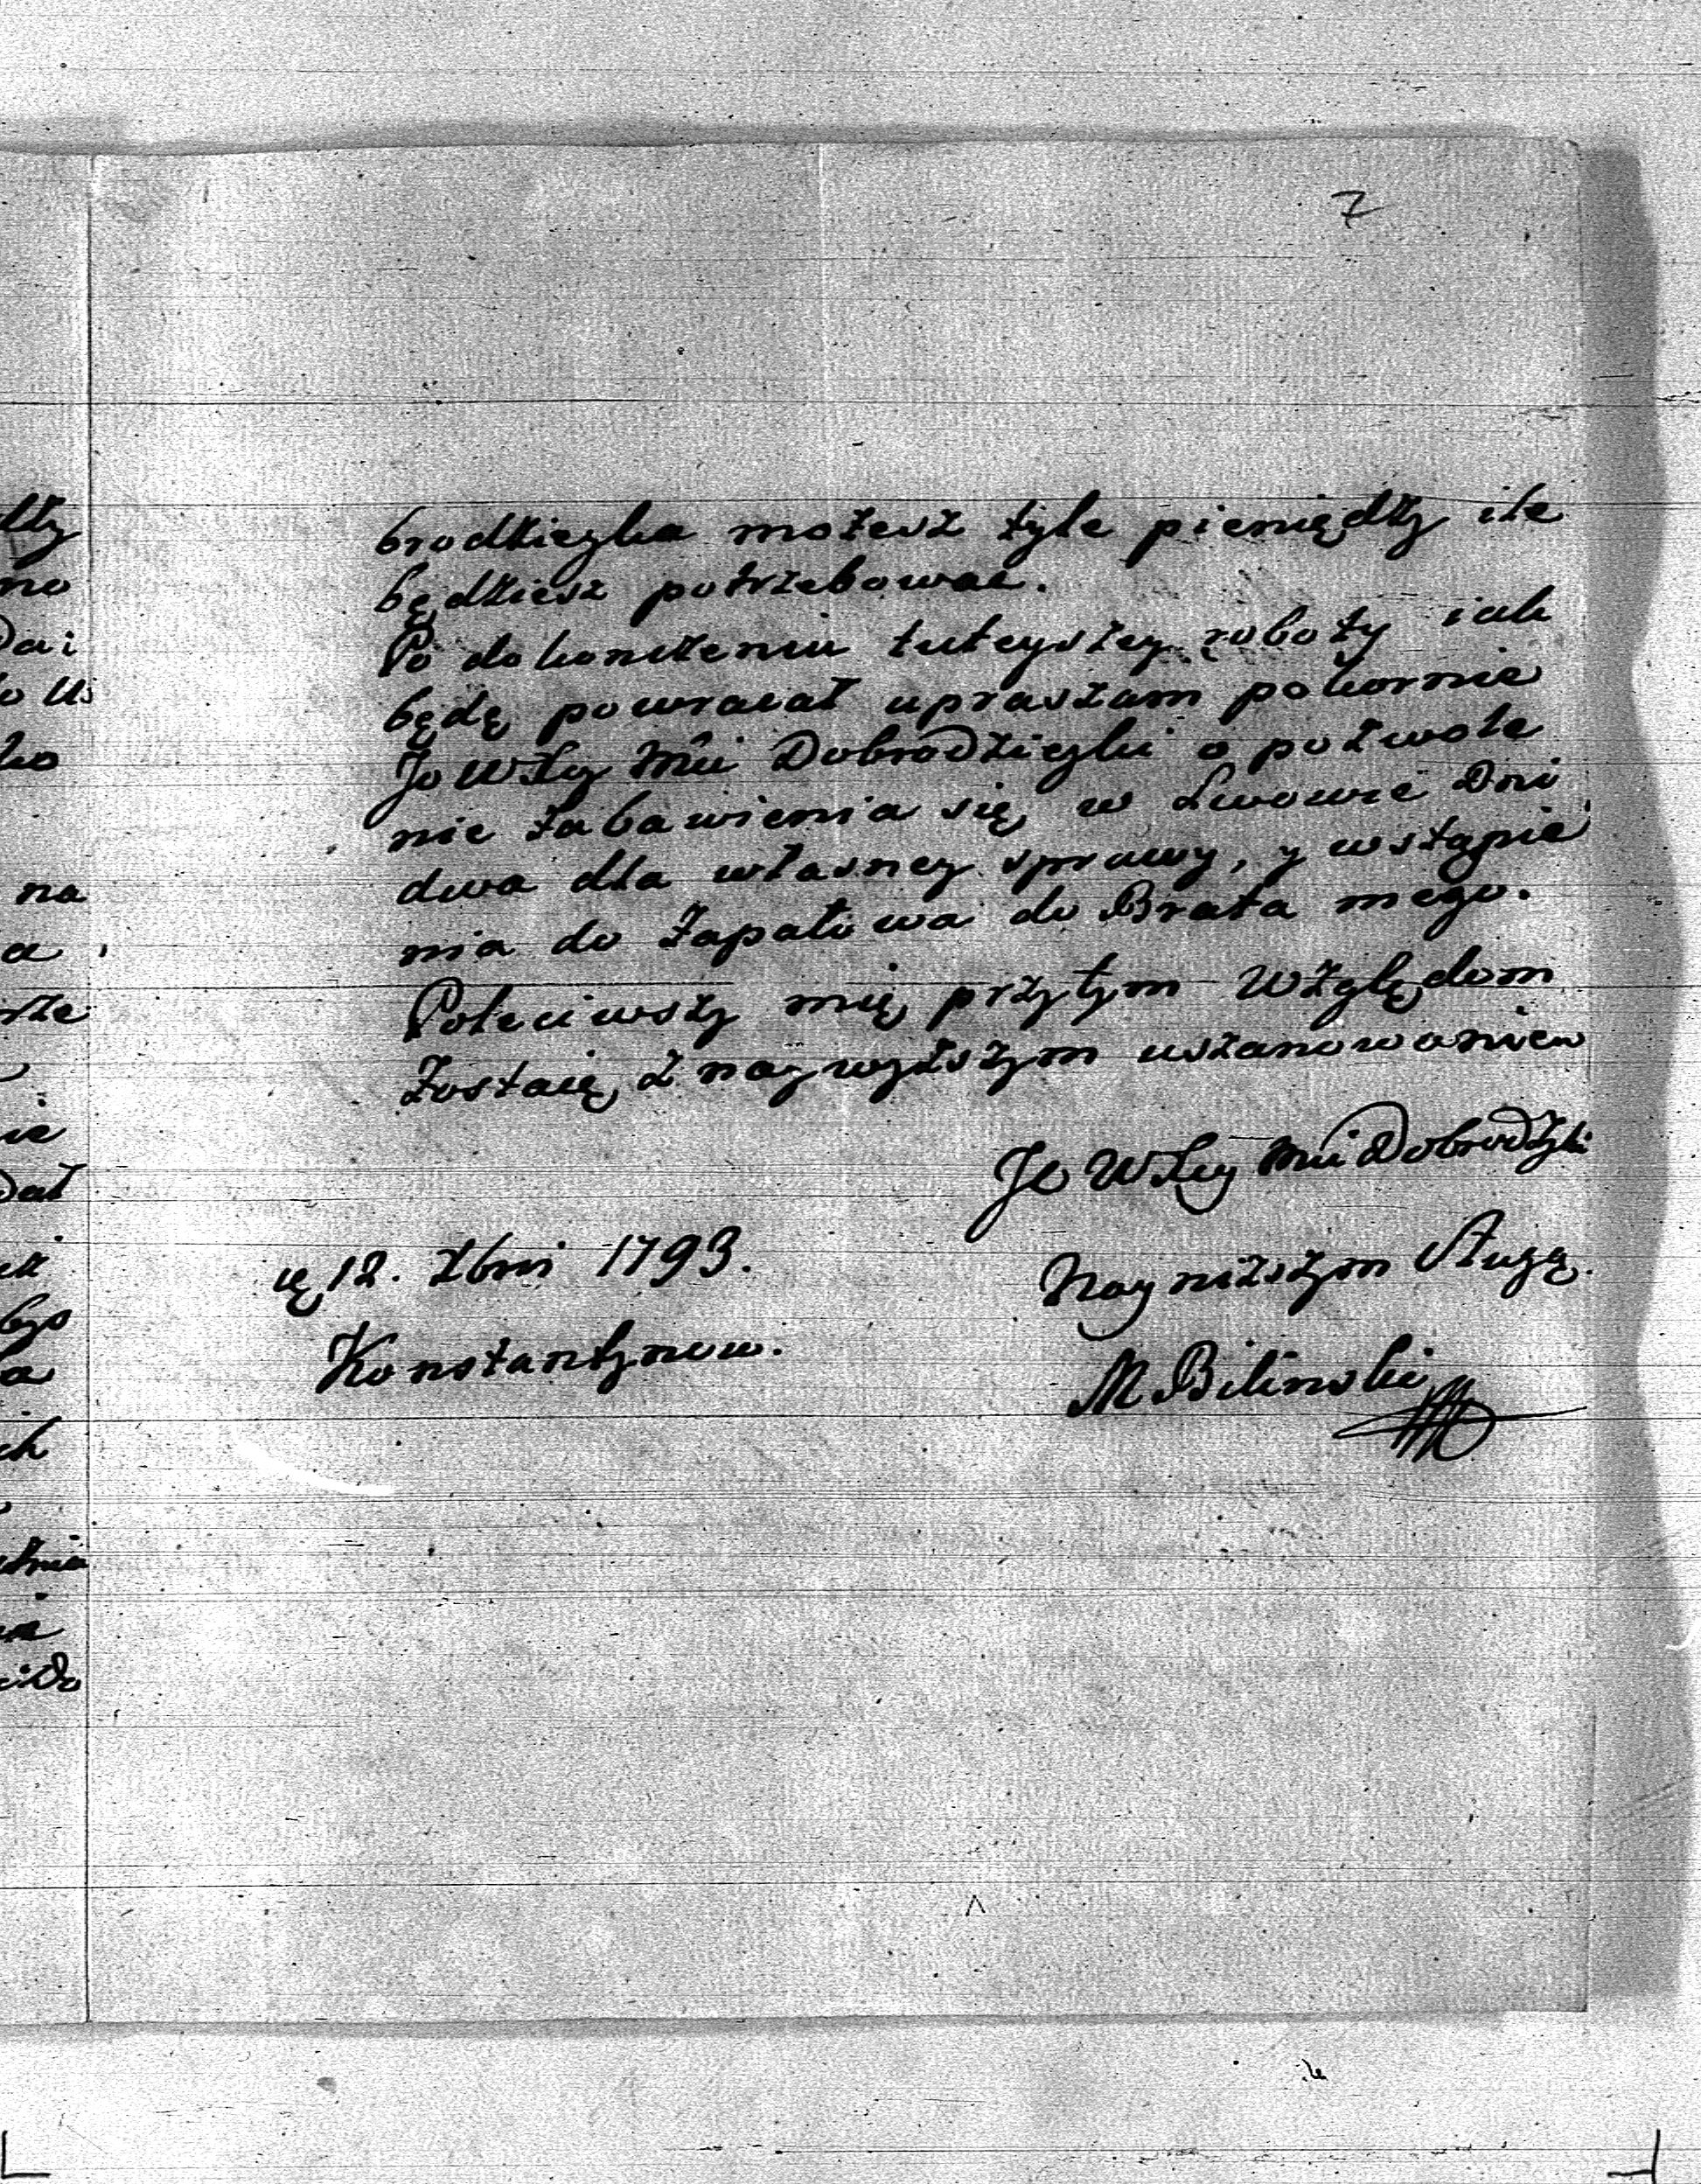 7
brodzieyka możesz tyle pieniędzy ile
będziesz potrzebować.
Po dokonczeniu tuteyszey roboty iak
będę powracał upraszam pokornie
Jo WZey Mii Dobrodzieyki o pozwole
nie zabawienia się w Lwowie Dni
dwa dla własney sprawy, y wstąpie
nia do Zapałowa do Brata mego.
Poleciwszy mię przytym Względom
Zostaię z naywyższym uszanowaniem
Jo WZey Mii Dobrodzki
12. Xbris 1793.
Nayniższym Sługą.
Konstantynow.
M Bilinski